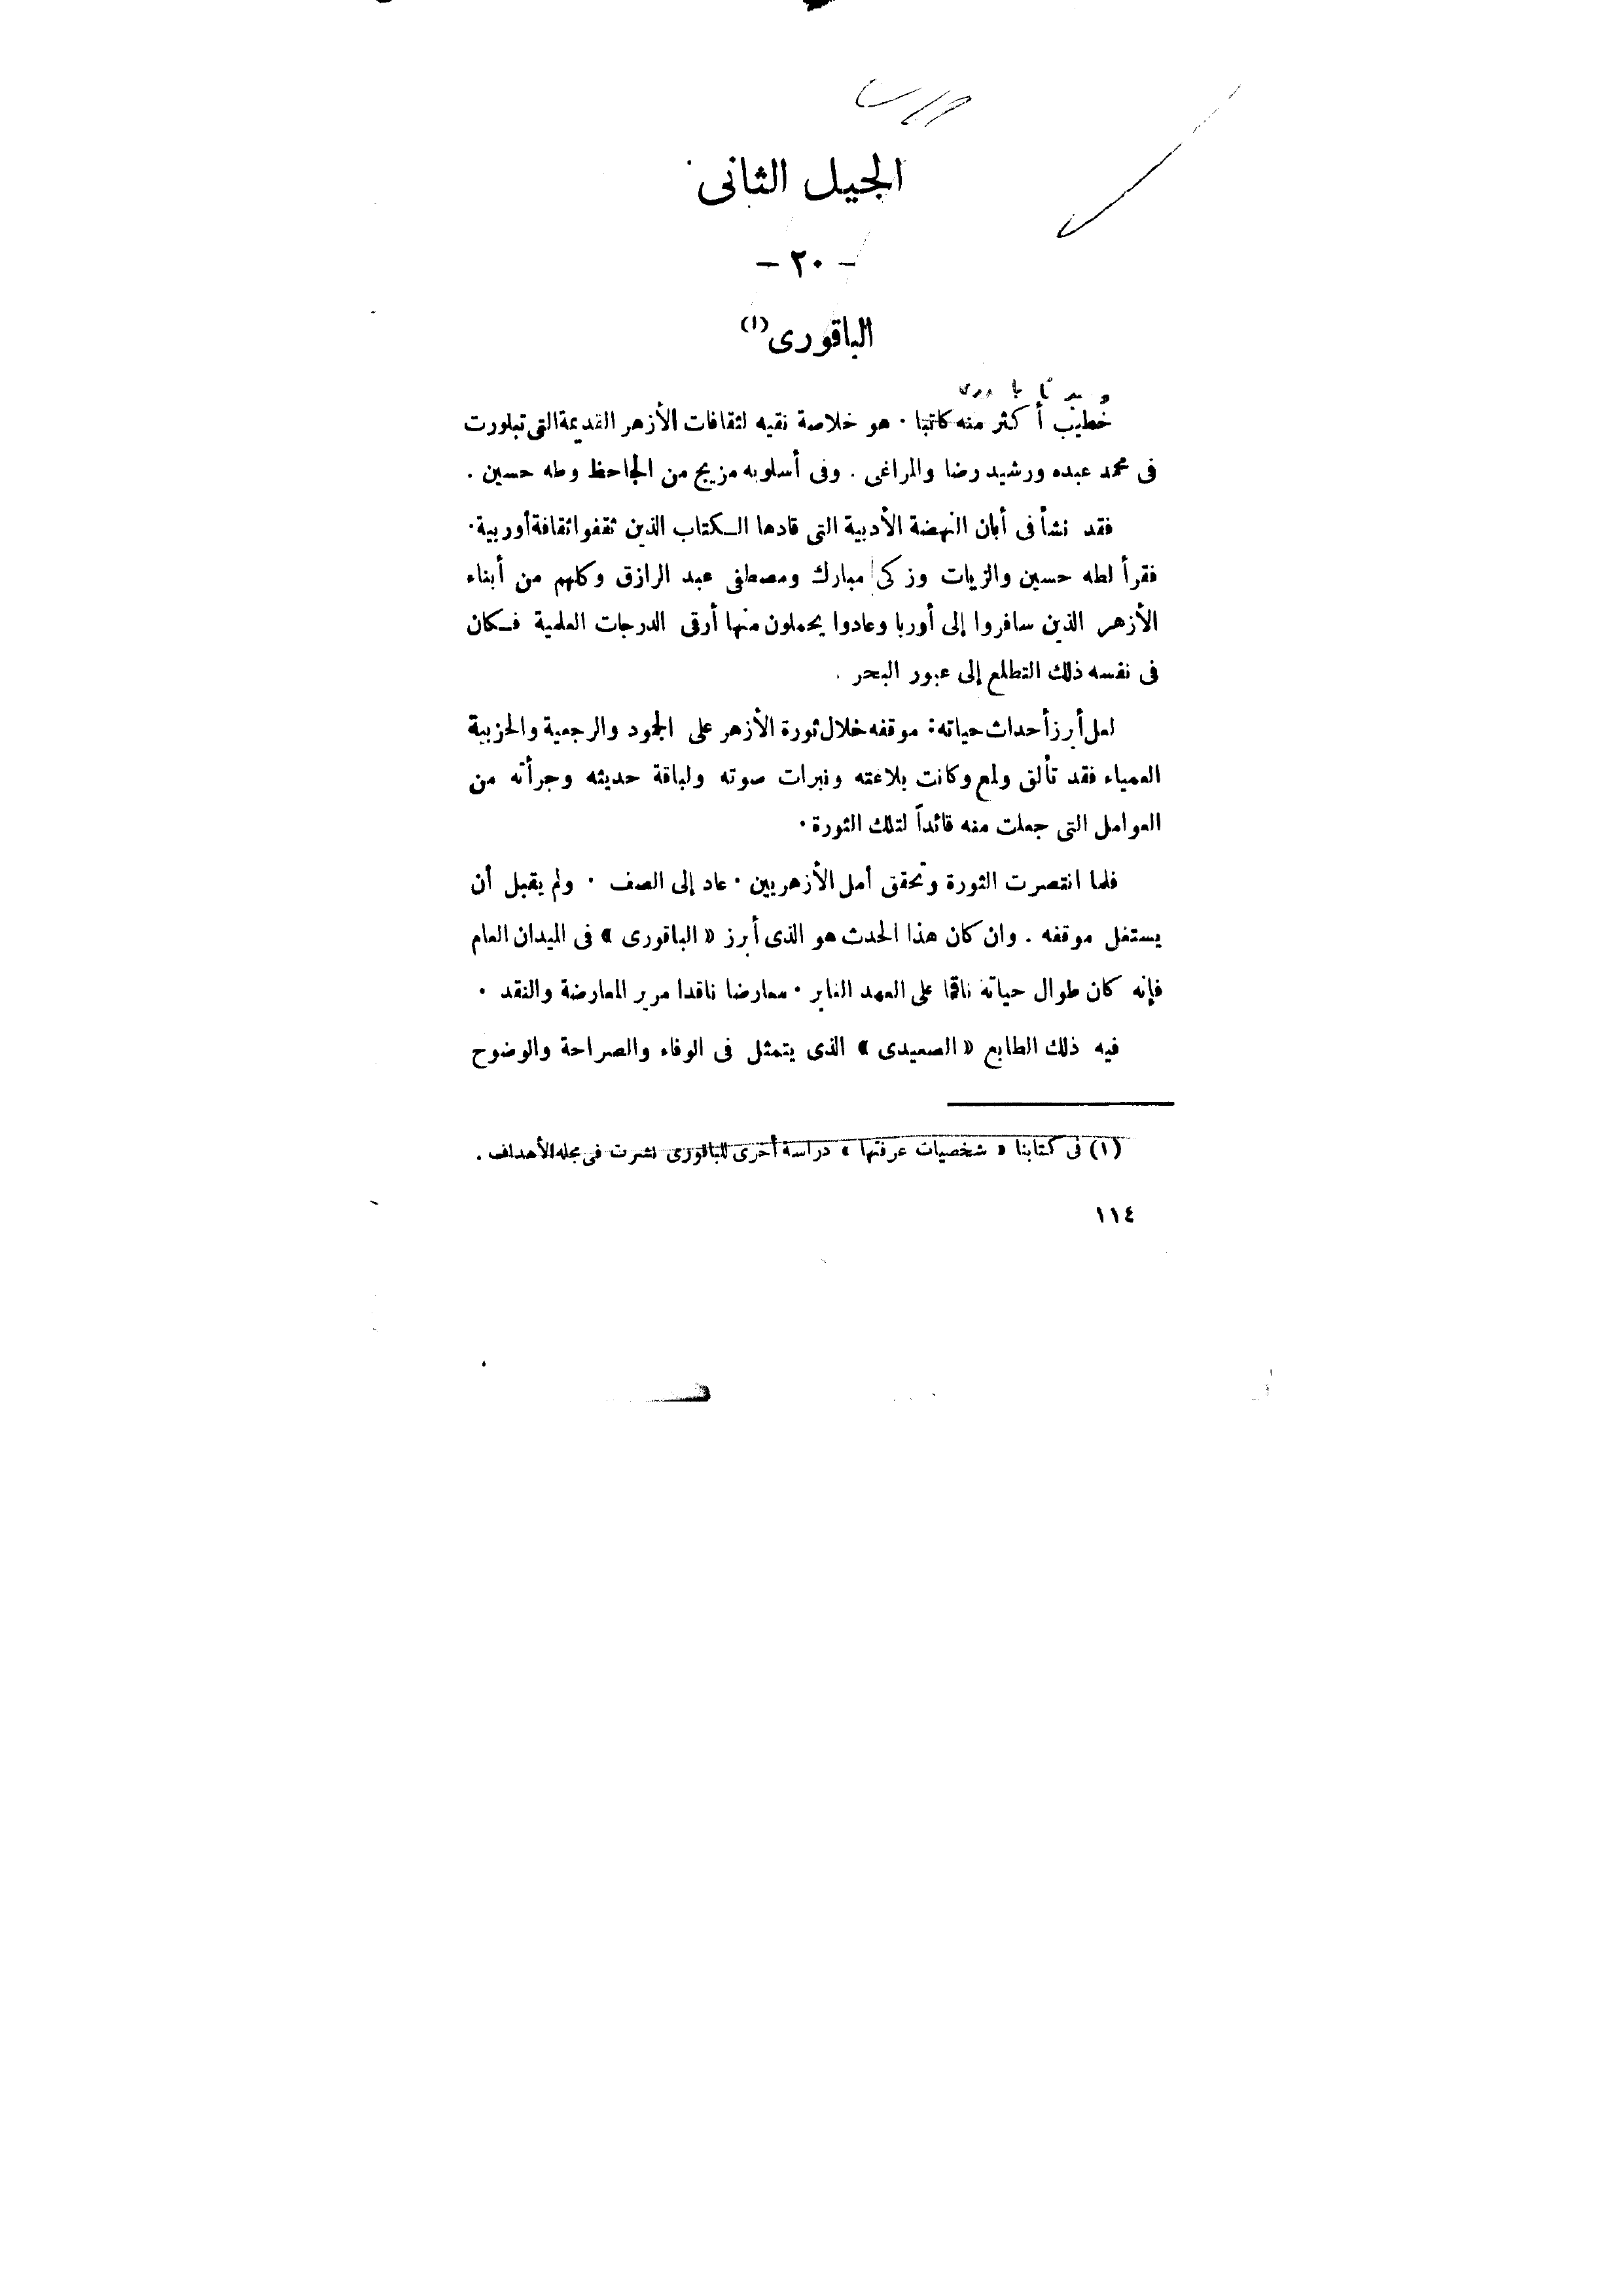 الجيل الثانى
- ٢٠ -
الباقورى (١)
خطيب أكثر منه كاتبا . هو خلاصة نقيه لثقافات الأزهر القديمة التى تبلورت
فى محمد عبده ورشيد رضا والمراغى . وفى أسلوبه مزيج من الجاحظ وطه حسين .
فقد نشأ فى أبان النهضة الأدبية التى قادها الكتاب الذين ثقفوا ثقافة أوربية .
فقرأ لطه حسين والزيات وزكى مبارك ومصطفى عبد الرازق وكلهم من أبناء
الأزهر الذين سافروا إلى أوربا وعادوا يحملون منها أرقى الدرجات العلمية فكان
فى نفسه ذلك التطلع إلى عبور البحر .
لعل أبرز أحداث حياته : موقفه خلال ثورة الأزهر على الجمود والرجعية والحزبية
العمياء فقد تألق ولمع وكانت بلاغته ونبرات صوته ولباقة حديثه وجرأته من
العوامل التى جعلت منه قائداً لتلك الثورة .
فلما انتصرت الثورة وتحقق أمل الأزهريين . عاد إلى الصف . ولم يقبل أن
يستغل موقفه . وان كان هذا الحدث هو الذى أبرز « الباقورى » فى الميدان العام
فإنه كان طوال حياته ناقما على العهد الغابر . معارضا ناقدا مرير المعارضة والنقد .
فيه ذلك الطابع « الصعيدى » الذى يتمثل فى الوفاء والصراحة والوضوح
(١) فى كتابنا « شخصيات عرفتها » دراسة أخرى للباقورى نشرت فى مجله الأهداف .
١١٤